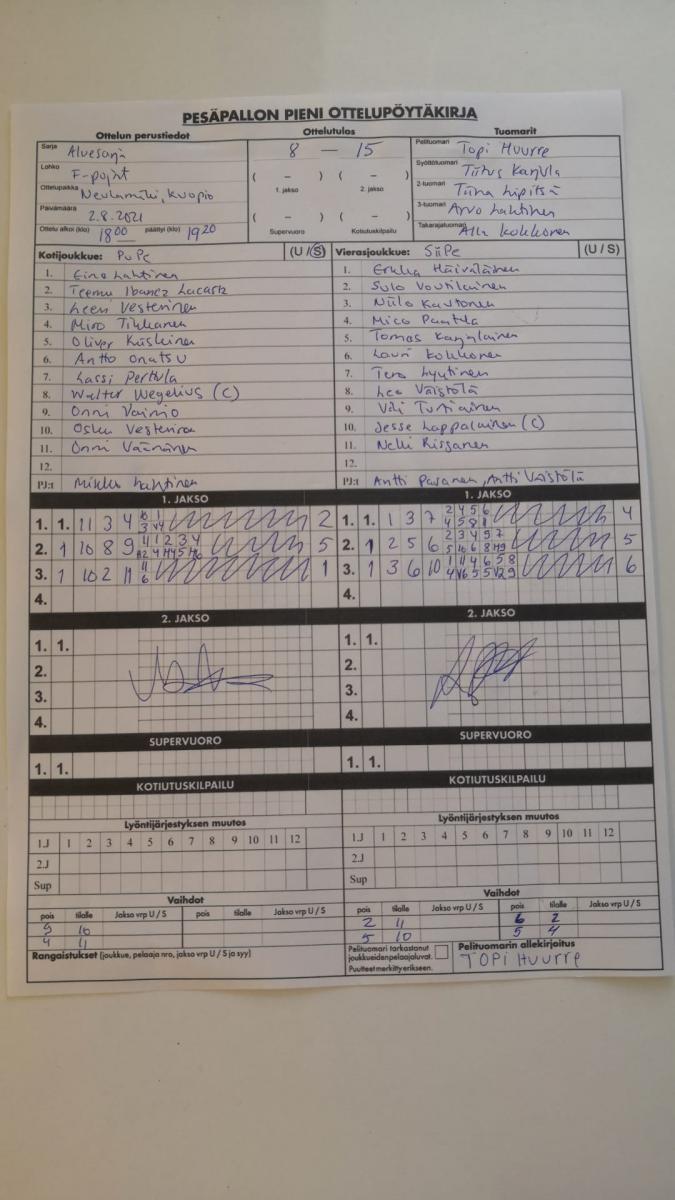 PESÄPALLON PIENI OTTELUPÖYTÄKIRJA
Ottelun perustiedot Ottelutulos Tuomarit
Sarja Aluesarja 8 – 15 Pelituomari Topi Huurre
Lohko F-pojat ( – ) ( – ) Syöttötuomari Titus Karjula
Ottelupaikka Neulamäki, Kuopio 1. jakso 2. jakso 2-tuomari Tiina Lipitsä
Päivämäärä 2.8.2021 ( – ) ( – ) 3-tuomari Arvo Lahtinen
Ottelu alkoi (klo) 18 00 päättyi (klo) 19 20 Supervuoro Kotiutuskilpailu Takarajatuomari Kokkonen
Kotijoukkue: PuPe (U / S) Vierasjoukkue: SiiPe (U / S)
1. Eino Lahtinen 1.
2. Teemu Ibanez 2. Sulo Voutilainen
3. Leevi Vesterinen 3. Niilo Kautonen
4. Miro Tikkanen 4. Mico
5. Oliver Kiiskinen 5. Tomas Karjalainen
6. Antto Onatsu 6. Lauri Kokkonen
7. Lassi Perttula 7. Tero Lyytinen
8. Walter Wegelius (C) 8. Leo Väistölä
9. Onni Vainio 9. Vili Turtiainen
10. Vesterinen 10. Jesse Lappalainen (C)
11. Onni Väänänen 11. Rissanen
12. 12.
PJ:t Mikko Lahtinen PJ:t Antti Pasanen, Antti Väistölä
1. JAKSO 1. JAKSO
1. 1. 11 3 4 2 1. 1. 1 3 7 4
2. 1 10 8 9 5 2. 1 2 5 6 5
3. 1 10 2 11 1 3. 1 3 6 10 6
4. 4.
2. JAKSO 2. JAKSO
1. 1. 1. 1.
2. 2.
3. 3.
4. 4.
SUPERVUORO SUPERVUORO
1. 1. 1. 1.
KOTIUTUSKILPAILU KOTIUTUSKILPAILU
Lyöntijärjestyksen muutos Lyöntijärjestyksen muutos
1.J 1 2 3 4 5 6 7 8 9 10 11 12 1.J 1 2 3 4 5 6 7 8 9 10 11 12
2.J 2.J
Sup Sup
Vaihdot Vaihdot
pois tilalle Jakso vrp U / S pois tilalle Jakso vrp U / S pois tilalle Jakso vrp U / S pois tilalle Jakso vrp U / S
9 10 2 11 6 2
4 11 5 10 5 4
Rangaistukset (joukkue, pelaaja nro, jakso vrp U / S ja syy) Pelituomari tarkastanut joukkueiden pelaajaluvat. Puutteet merkitty erikseen. Pelituomarin allekirjoitus
TOPI HUURRE